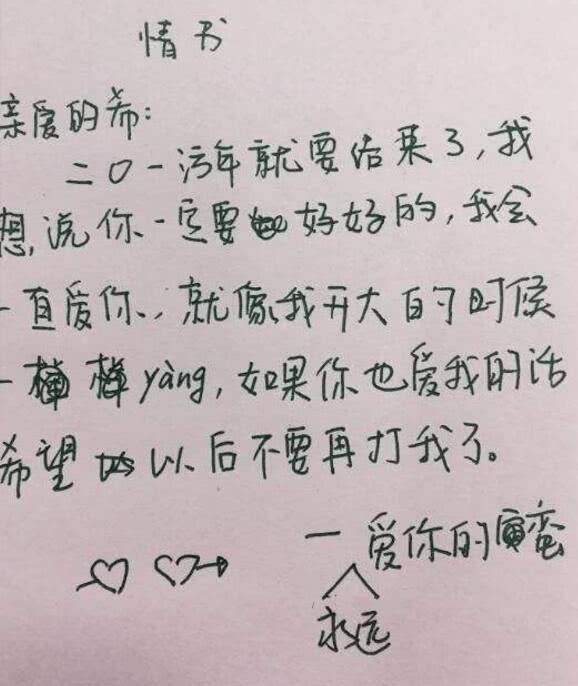 情书
亲爱的希:
二〇一污年就要结菜了,我
想说你一定要好好的,我会
一直爱你,就像我开大的时候
一样yàng,如果你也爱我的话
希望以后不要再打我了。
一爱你的寅蛮
永远